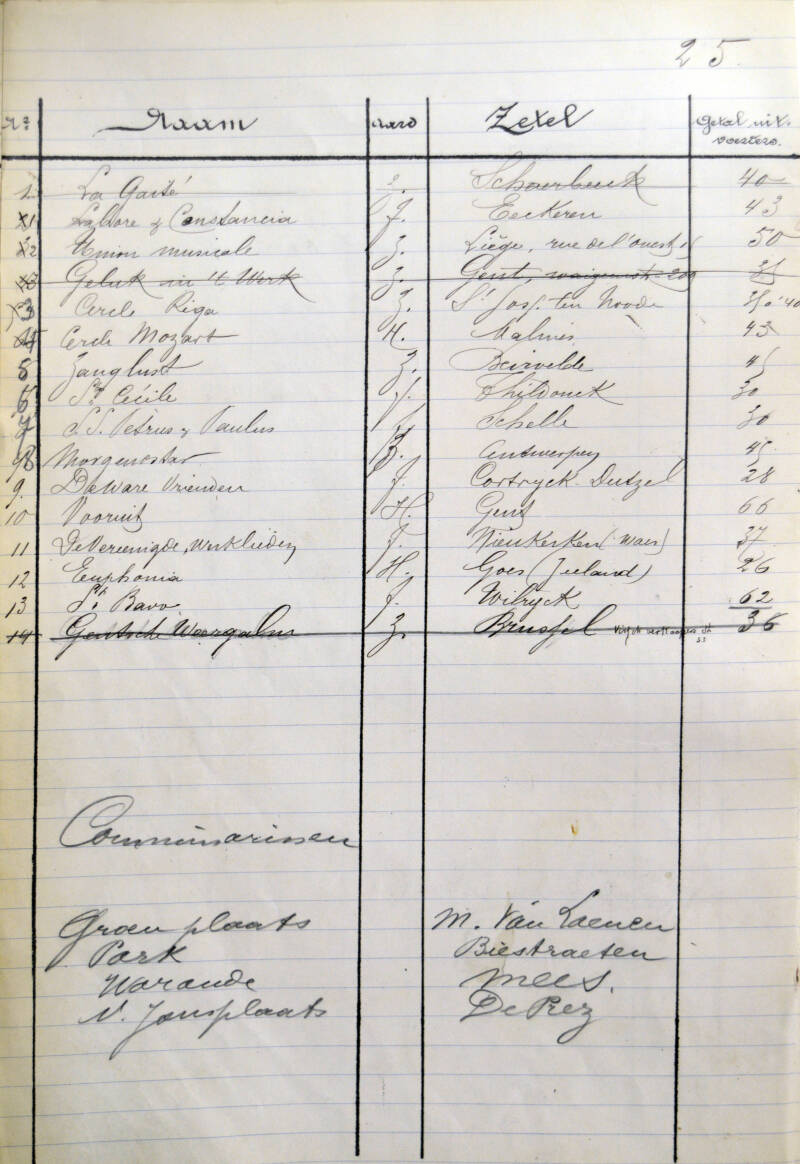 25.
Nº Naam aard Zetel Getal uit-
voerders.
1 La Gaité Schaerbeek 40
1 Labore & Constancia f. Eeckeren 43
2 Union musicale Z. Liège, rue de l'ouest 50
Geluk in 't Werk Z. Gent,
3 Cercle Riga Z. St Josf. ten Noode 40
4 Cercle Mozart H. Malines 43
5 Zanglust Z. Beirvelde 45
6 Ste Cécile f. Schildonck 30
7 S.S. Petrus & Paulus f. Schelle 30
8 Morgenstar Z. Antwerpen 45
9 De Ware Vrienden f. Cortryck-Dutzel 28
10 Vooruit H. Gent 66
11 De Vereenigde Werklieden f. Nieukerken (Waes) 37
12 Euphonia H. Goes (Zeeland) 26
13 St Bavo f. Wilryck 62
14 Gentsche Z. Brussel 36
Commissarissen
Groenplaats M. Van Laenen
Park Biestraeten
Warande Mees.
N. Jansplaats De Prez